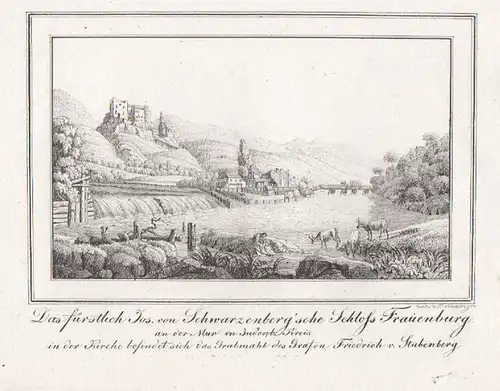 Das fürstlich Jos. von Schwarzenberg'sche Schloss Frauenburg
an der Mur im Judenb. Kreis
in der Kirche befindet sich das Grabmahl des Grafen Friedrich v. Stubenberg.